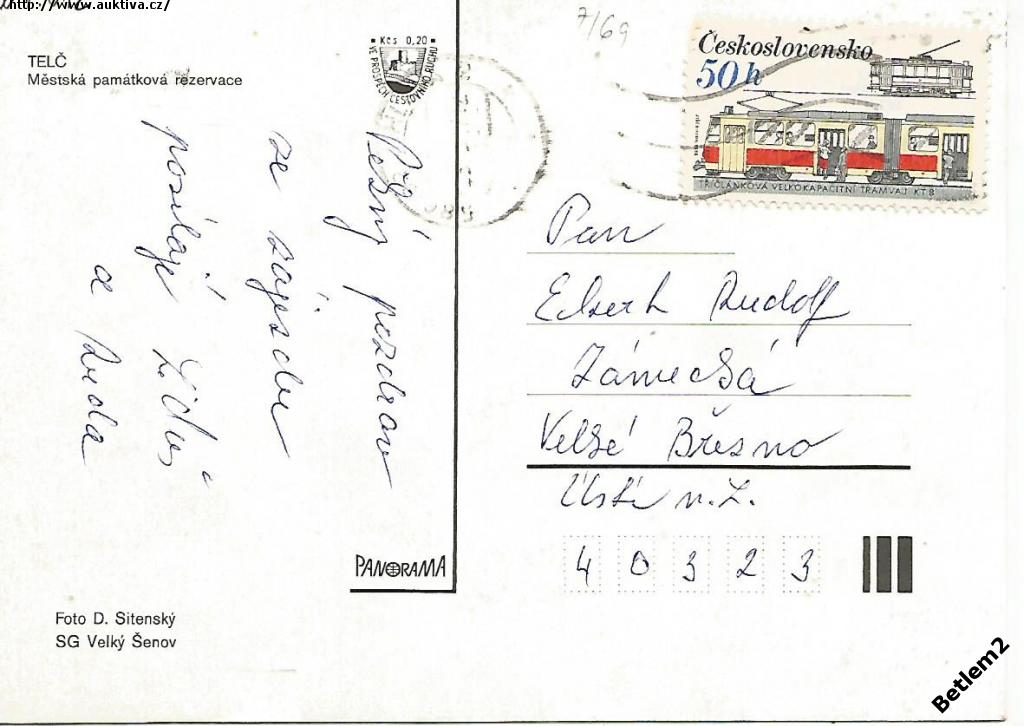 http://www.auktiva.cz/
TELČ
Městská památková rezervace
Kčs 0,20
VE PROSPĚCH CESTOVNÍHO RUCHU
7/69
Československo
50 h
TŘÍČLÁNKOVÁ VELKOKAPACITNÍ TRAMVAJ KT 8
Pěkný pozdrav
ze zájezdu
posílají Liduš
a Ruda
Pan
Rudolf
Zámecká
Velké Březno
Ústí n. L.
4 0 3 2 3
PANORAMA
Foto D. Sitenský
SG Velký Šenov
Betlem2